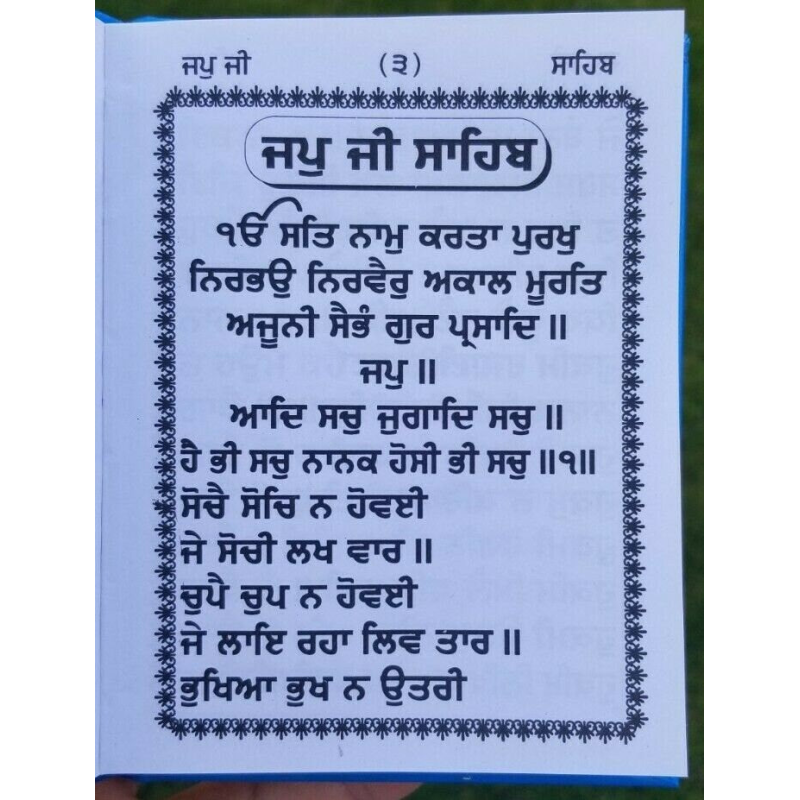 ਜਪੁ ਜੀ (੩) ਸਾਹਿਬ
ਜਪੁ ਜੀ ਸਾਹਿਬ
ੴ ਸਤਿ ਨਾਮੁ ਕਰਤਾ ਪੁਰਖੁ
ਨਿਰਭਉ ਨਿਰਵੈਰੁ ਅਕਾਲ ਮੂਰਤਿ
ਅਜੂਨੀ ਸੈਭੰ ਗੁਰ ਪ੍ਰਸਾਦਿ ॥
ਜਪੁ ॥
ਆਦਿ ਸਚੁ ਜੁਗਾਦਿ ਸਚੁ ॥
ਹੈ ਭੀ ਸਚੁ ਨਾਨਕ ਹੋਸੀ ਭੀ ਸਚੁ ॥੧॥
ਸੋਚੈ ਸੋਚਿ ਨ ਹੋਵਈ
ਜੇ ਸੋਚੀ ਲਖ ਵਾਰ ॥
ਚੁਪੈ ਚੁਪ ਨ ਹੋਵਈ
ਜੇ ਲਾਇ ਰਹਾ ਲਿਵ ਤਾਰ ॥
ਭੁਖਿਆ ਭੁਖ ਨ ਉਤਰੀ